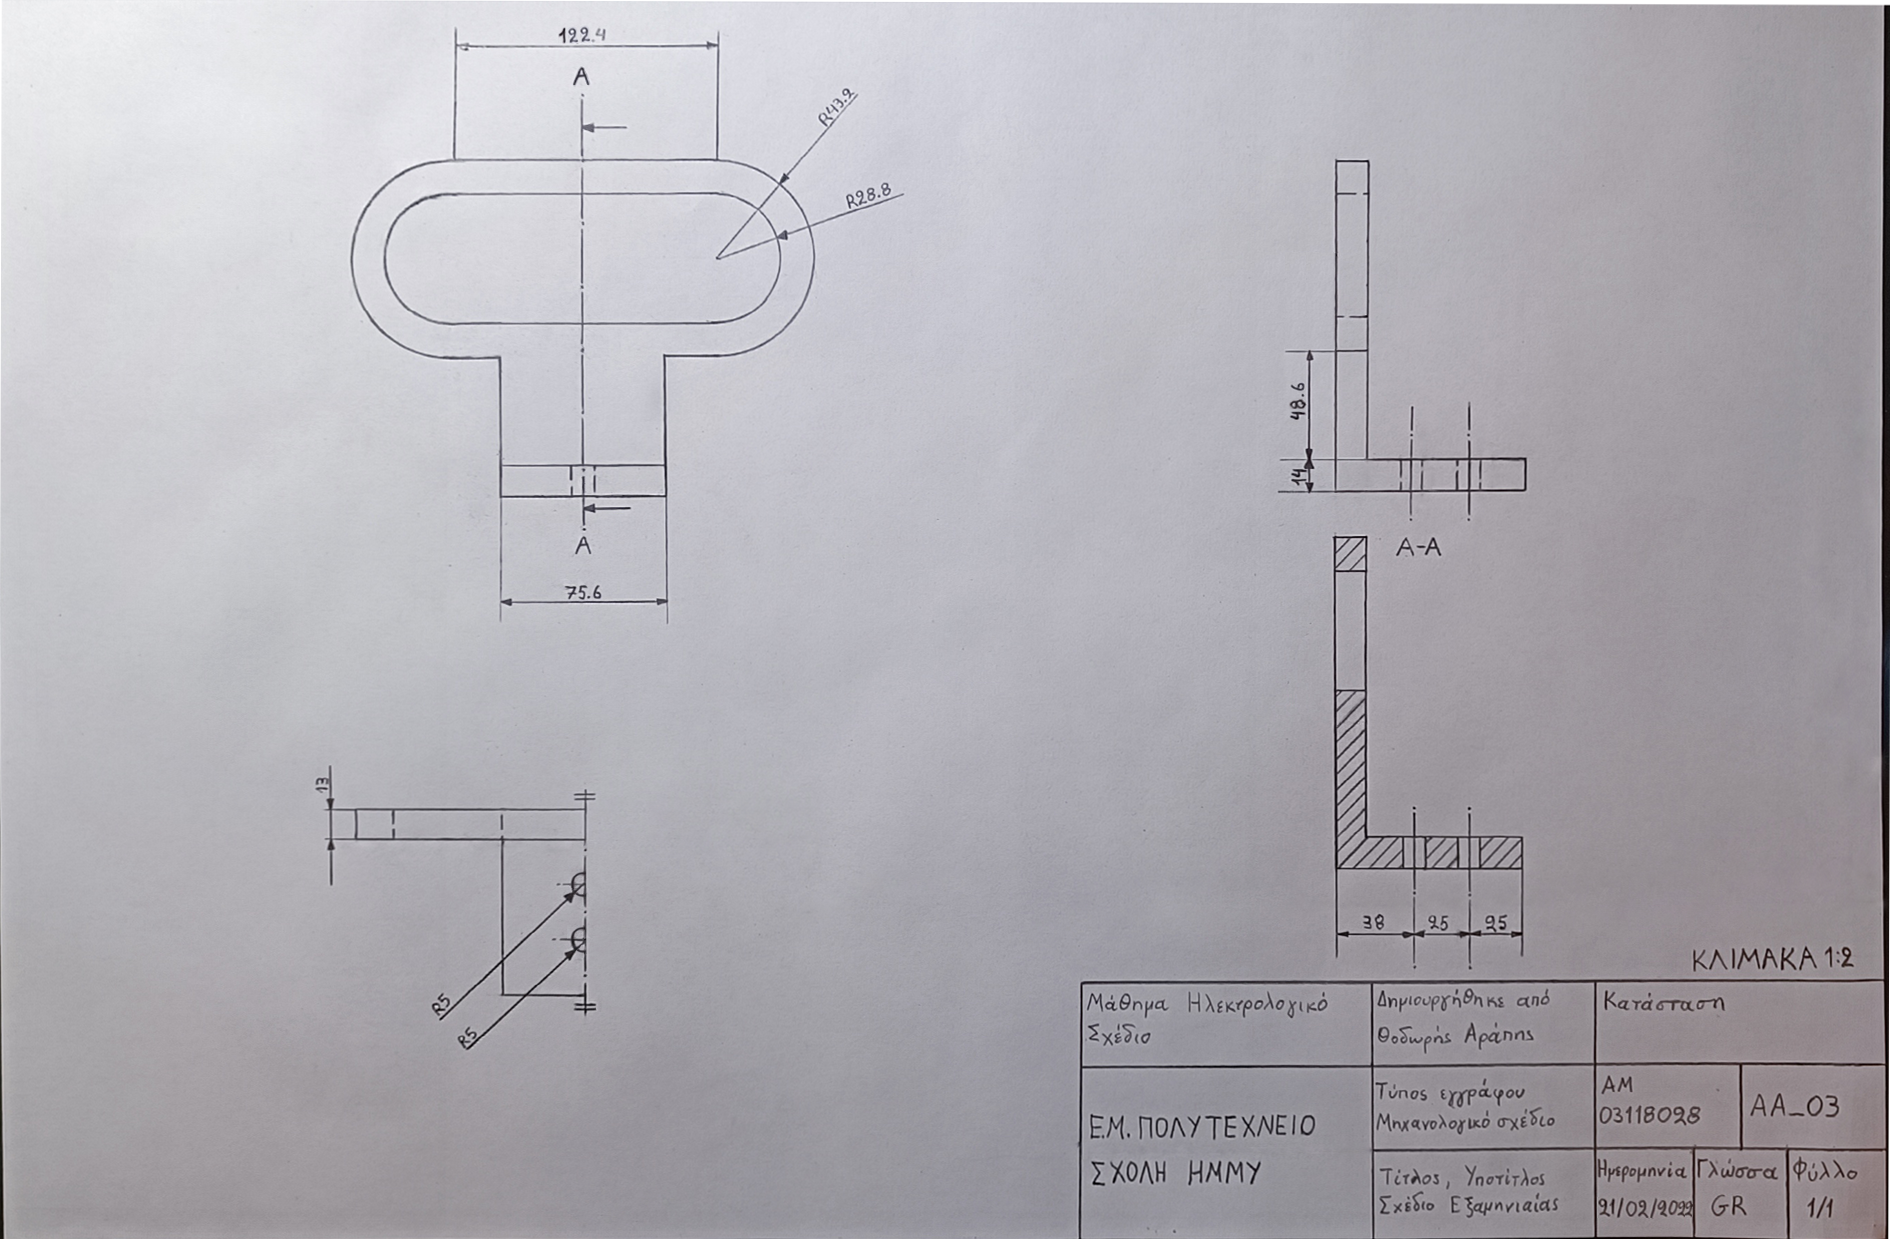 122.4
A
R43.2
R28.8
A
75.6
48.6
14
A-A
13
R5
R5
38
25
25
ΚΛΙΜΑΚΑ 1:2
Μάθημα Ηλεκτρολογικό
Σχέδιο
Δημιουργήθηκε από
Θοδωρής Αράπης
Κατάσταση
Ε.Μ. ΠΟΛΥΤΕΧΝΕΙΟ
ΣΧΟΛΗ ΗΜΜΥ
Τύπος εγγράφου
Μηχανολογικό σχέδιο
ΑΜ
03118028
AA_03
Τίτλος, Υποτίτλος
Σχέδιο Εξαμηνιαίας
Ημερομηνία
21/02/2022
Γλώσσα
GR
Φύλλο
1/1